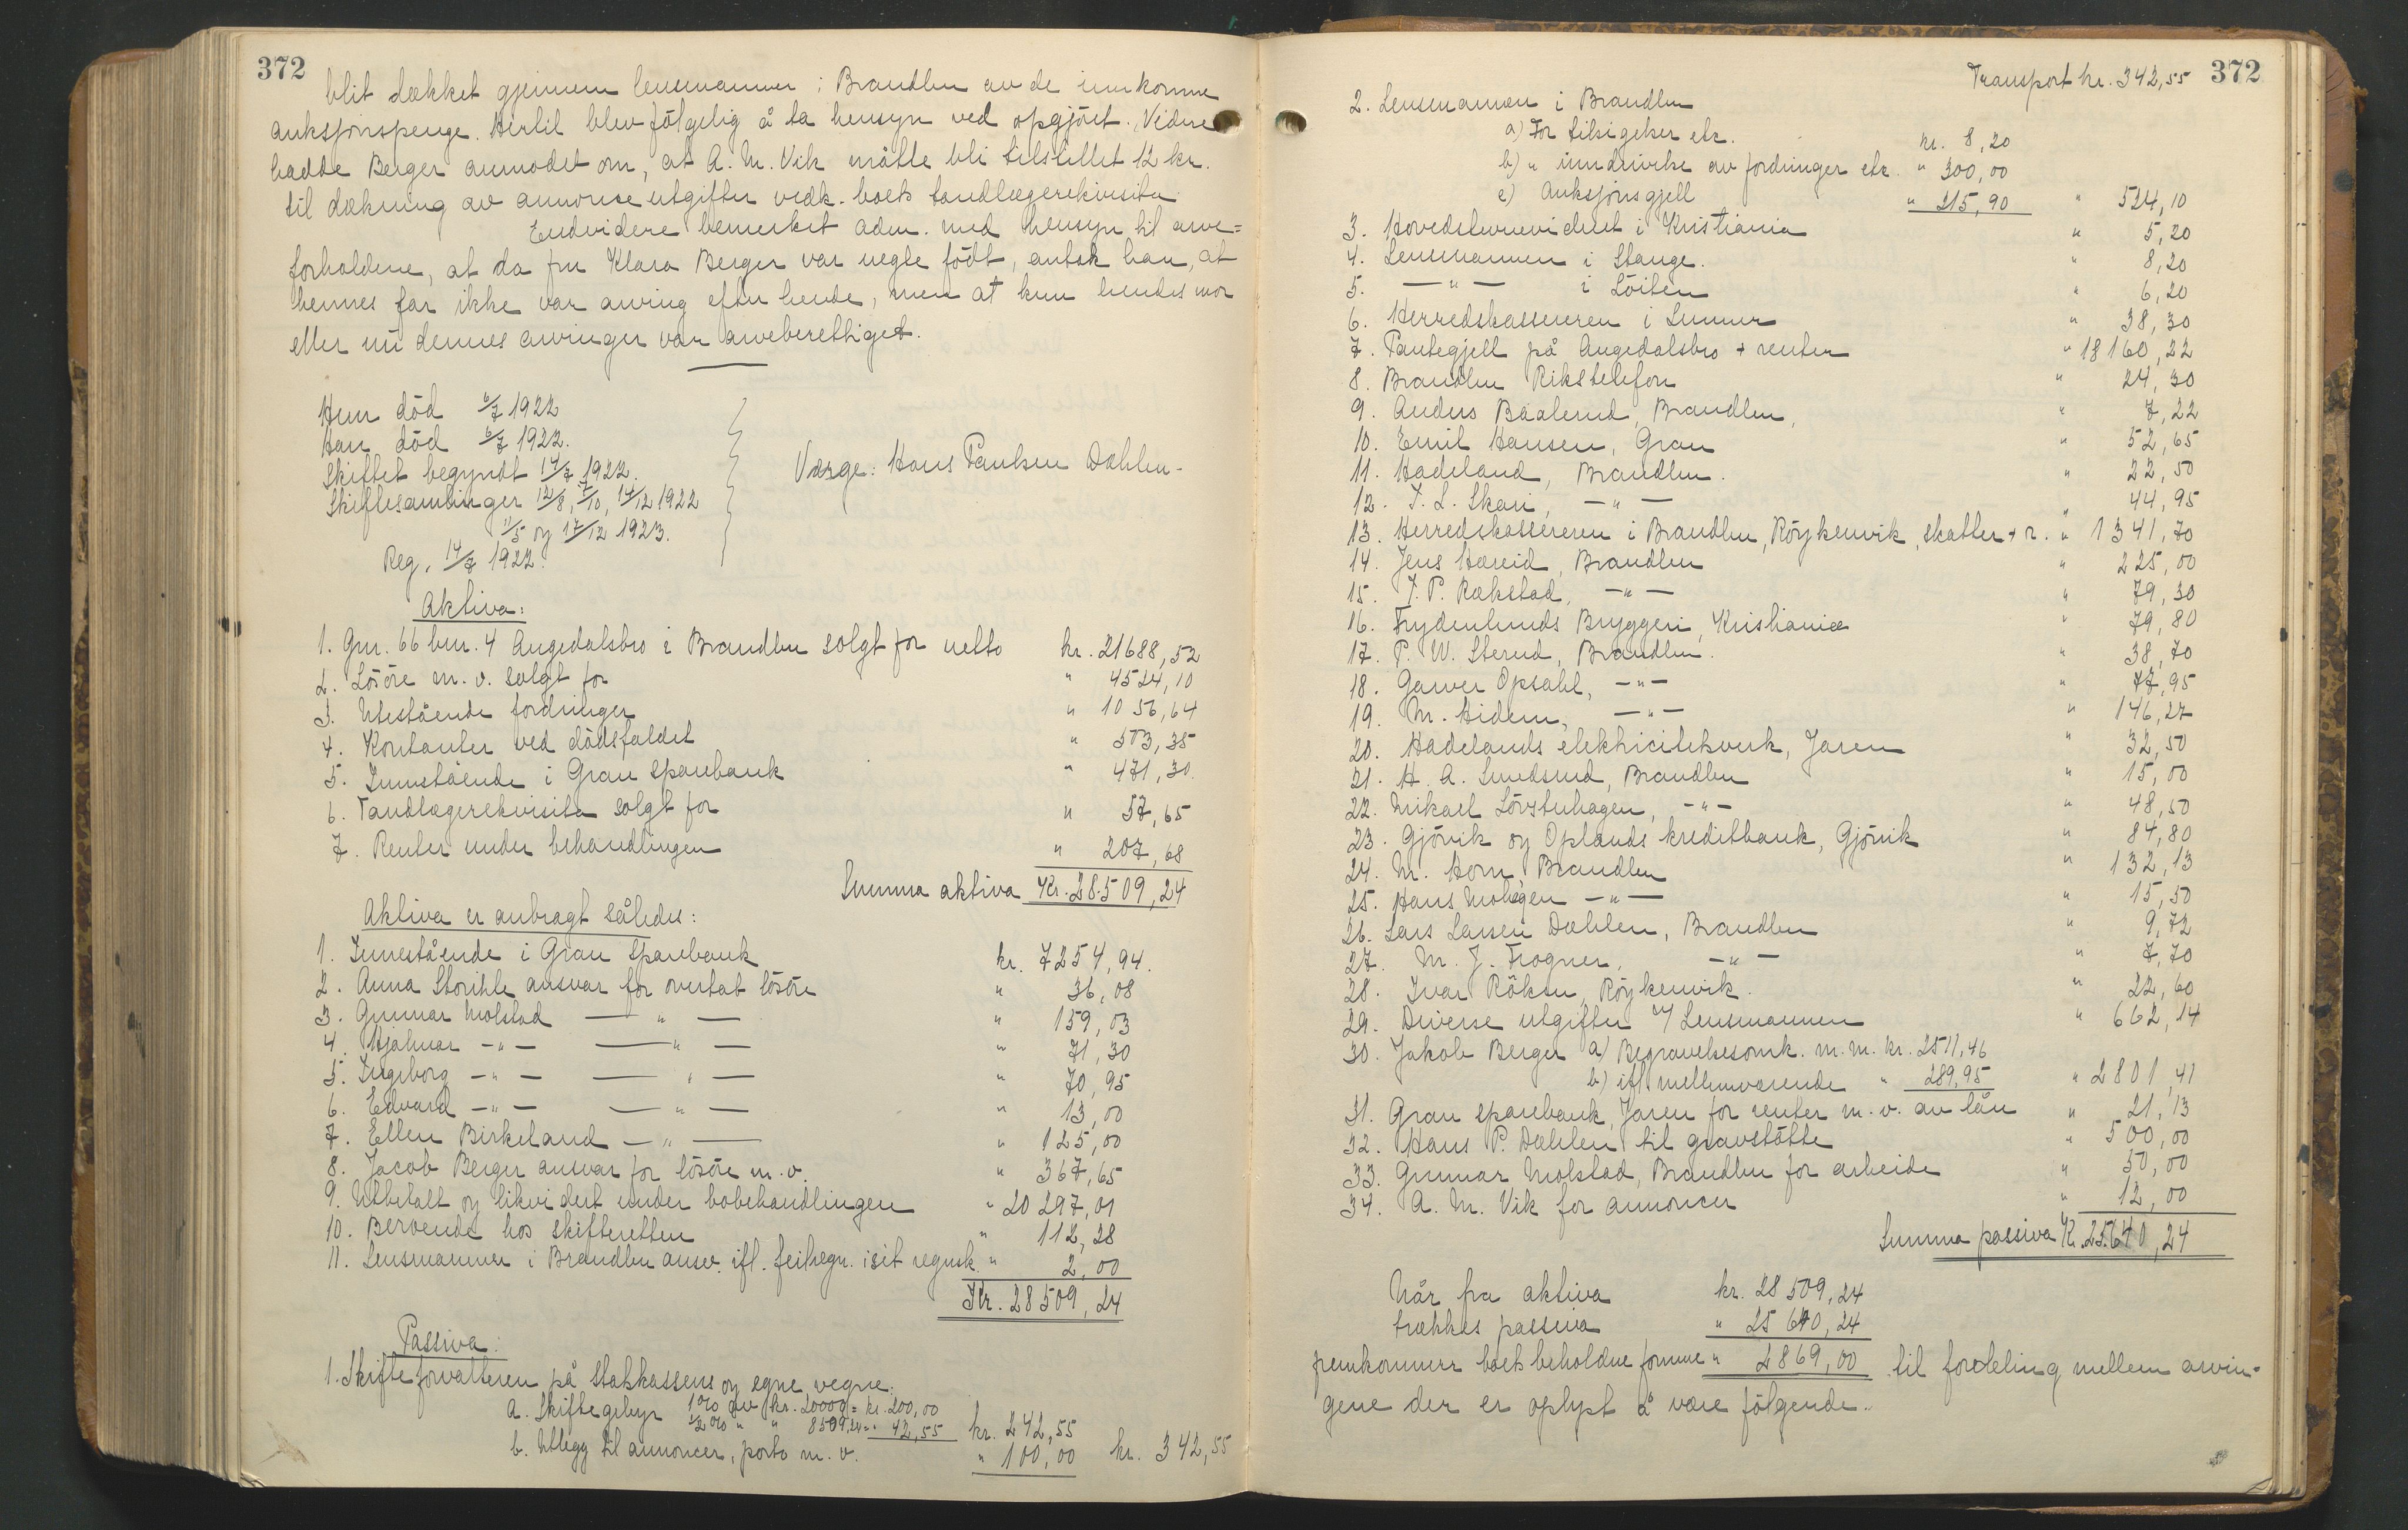 372
blit dækket gjennem lensmannen i Brandbu av de innkomne
auksjonspenge. Hertil blev følgelig å ta hensyn ved opgjöret. Videre
hadde Berger anmodet om, at A. M. Vik måtte bli tilstillet 12 kr.
til dækning av annonseutgifter vedk. boets tandlægerekvisita.
Endvidere bemerket adm. med hensyn til arve=
forholdene, at da fru Klara Berger var uegte födt, antok han, at
hennes far ikke var arving efter hende, men at kun hendes mor
eller nu dennes arvinger var arveberettiget.
Hun död 6/7 1922
Han död 6/7 1922.
Skiftet begyndt 14/7 1922.
Værge: Hans Paulsen Dæhlen.
Skiftesamlinger 12/8, 7/10, 14/12 1922
11/5 og 17/12 1923.
Reg. 14/7 1922.
Aktiva:
1. Gnr. 66 bnr. 4 Augedalsbro i Brandbu solgt for netto kr. 21688,52
2. Lösöre m. v. solgt for " 4524,10
3. Utestående fordringer " 1056,64
4. Kontanter ved dödsfaldet " 503,35
5. Innestående i Gran sparebank " 471,30.
6. Tandlægerekvisita solgt for " 57,65
7. Renter under behandlingen " 207,68
Summa aktiva Kr. 28.509,24
Aktiva er anbragt således:
1. Innestående i Gran sparebank kr. 7254,94.
2. Anna Storihle ansvar for overtat lösöre " 36,08
3. Gunnar Molstad — " — " 159,03
4. Hjalmar — " — — " — " 71,30
5. Ingeborg — " — — " — " 70,95
6. Edvard — " — — " — " 13,00
7. Ellen Birkeland — " — " 125,00
8. Jacob Berger ansvar for lösöre m. v. " 367,65
9. Utbetalt og likvidert under bobehandlingen " 20297,01
10. Beroende hos skifteretten " 112,28
11. Lensmannen i Brandbu ansv. ifl. feilregn. i sit regnsk. " 2,00
Kr. 28509,24
Passiva:
1. Skifteforvalteren på Statskassens og egne vegne:
a. Skiftegebyr 1% av kr. 20000 = kr. 200,00
1/2% " " 8509,24 = " 42,55 kr. 242,55
b. Utlegg til annoncer, porto m. v. " 100,00 kr. 342,55
372
Transport kr. 342,55
2. Lensmannen i Brandbu
a) For tilsigelser etc. kr. 8,20
b) " inndrivelse av fordringer etc. " 300,00
c) Auksjonsgjell " 215,90 " 524,10
3. Hovedstevnevidnet i Kristiania " 5,20
4. Lensmannen i Stange. " 8,20
5. — " — i Löiten " 6,20
6. Herredskassereren i Lunner " 38,30
7. Pantegjell på Augedalsbro + renter " 18160,22
8. Brandbu Rikstelefon " 24,30
9. Anders Baalerud, Brandbu, " 7,22
10. Emil Hansen, Gran " 52,65
11. Hadeland, Brandbu. " 22,50
12. T. L. Skari, — " — " 44,95
13. Herredskassereren i Brandbu, Röykenvik, skatter + r. " 1341,70
14. Jens Hæreid, Brandbu " 225,00
15. T. P. Rækstad, — " — " 79,30
16. Frydenlunds Bryggeri, Kristiania " 79,80
17. P. W. Sterud, Brandbu. " 38,70
18. Garver Opsahl, — " — " 77,95
19. M. Hidem, — " — " 146,27
20. Hadelands elektricitetsverk, Jaren " 32,50
21. H. A. Smedsrud, Brandbu " 15,00
22. Mikael Lövstuhagen, — " — " 48,50
23. Gjövik og Oplands kreditbank, Gjövik " 84,80
24. M. Horn, Brandbu " 132,13
25. Hans Mohagen — " — " 15,50
26. Lars Larsen Dæhlen, Brandbu " 9,72
27. M. J. Frogner, — " — " 7,70
28. Ivar Röken, Röykenvik. " 22,60
29. Diverse utgifter v/ Lensmannen " 662,14
30. Jakob Berger a) Begravelsesomk. m. m. kr. 2511,46
b) ifl. mellemværende " 289,95 " 2801,41
31. Gran sparebank, Jaren for renter m. v. av lån " 21,13
32. Hans P. Dæhlen til gravstötte " 500,00
33. Gunnar Molstad, Brandbu for arbeide " 50,00
34. A. M. Vik for annoncer " 12,00
Summa passiva Kr. 25.640,24
Når fra aktiva kr. 28509,24
trækkes passiva " 25640,24
fremkommer boets beholdne formue " 2869,00 til fordeling mellem arvin-
gene der er oplyst å være følgende..